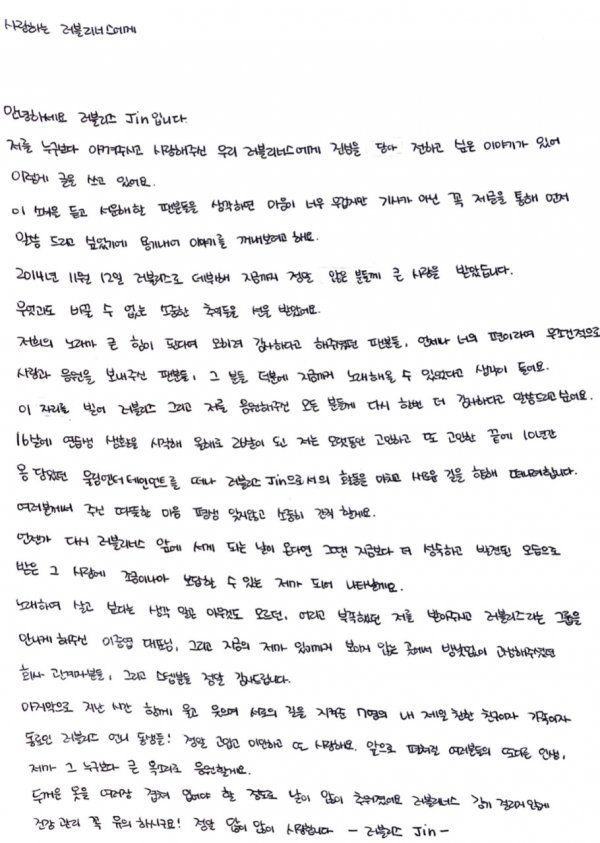 사랑하는 러블리너스에게
안녕하세요 러블리즈 Jin입니다
저를 누구보다 아껴주시고 사랑해주신 우리 러블리너스에게 진심을 담아 전하고 싶은 이야기가 있어
이렇게 글을 쓰고 있어요.
이 소식을 듣고 서운해할 팬분들을 생각하면 마음이 너무 무겁지만 기사가 아닌 꼭 저를 통해 먼저
말씀 드리고 싶었기에 용기내어 이야기를 꺼내보려고 해요.
2014년 11월 12일 러블리즈로 데뷔해 지금까지 정말 많은 분들께 큰 사랑을 받았습니다.
무엇과도 바꿀 수 없는 소중한 추억들을 선물 받았어요.
저희의 노래가 큰 힘이 된다며 오히려 감사하다고 해주셨던 팬분들, 언제나 너의 편이라며 무조건적으로
사랑과 응원을 보내주신 팬분들, 그 분들 덕분에 지금까지 노래해올 수 있었다고 생각이 들어요.
이 자리를 빌어 러블리즈 그리고 저를 응원해주신 모든 분들께 다시 한번 더 감사하다고 말씀드리고싶어요.
16살에 연습생 생활을 시작해 올해로 26살이 되신 저는 오랫동안 고민하고 또 고민한 끝에 10년간
몸 담았던 울림엔터테인먼트를 떠나 러블리즈 Jin으로서의 활동을 마치고 새로운 길을 향해 떠나려합니다.
여러분께서 주신 따뜻한 마음 평생 잊지않고 소중히 간직 할게요.
언젠가 다시 러블리너스 앞에 서게 되는 날이 온다면 그땐 지금보다 더 성숙하고 발전된 모습으로
받은 그 사랑에 조금이나마 보답할 수 있는 제가 되어 나타날게요.
노래하며 살고 싶다는 생각 말곤 아무것도 모르던, 어리고 부족했던 저를 받아주시고 러블리즈라는 그룹을
만나게 해주신 이중엽 대표님, 그리고 지금의 제가 있기까지 보이지 않는 곳에서 밤낮없이 고생해주셨던
회사 관계자분들, 그리고 스텝분들 정말 감사드립니다.
마지막으로 지난 시간 함께 울고 웃으며 서로의 길을 지켜준 7명의 내 제일 친한 친구이자 가족이자
동료인 러블리즈 언니 동생들! 정말 고맙고 미안하고 또 사랑해요. 앞으로 펼쳐질 여러분들의 또다른 인생,
제가 그 누구보다 큰 목소리로 응원할게요.
두꺼운 옷을 여러장 겹쳐 입어야 할 정도로 날이 많이 추워졌어요 러블리너스 감기 걸리지 않게
건강 관리 꼭 유의 하시구요! 정말 많이 많이 사랑합니다 - 러블리즈 Jin -